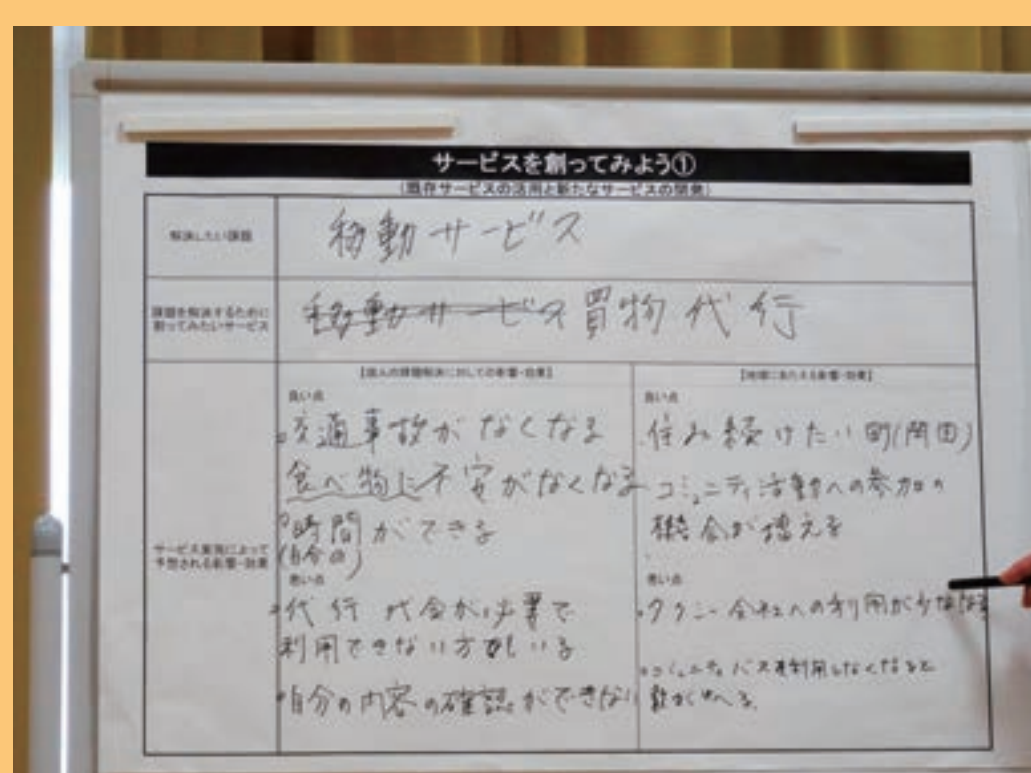 サービスを創ってみよう①
(既存サービスの活用と新たなサービスの開発)
解決したい課題
移動サービス
課題を解決するために
創ってみたいサービス
移動サービス買物代行
サービス実施によって
予想される影響・効果
【個人の課題解決に対しての影響・効果】
良い点
交通事故がなくなる
食べ物に不安がなくなる
時間ができる
(自分の)
悪い点
代行代金が必要で
利用できない方もいる
自分の内容の確認ができない
【地域にあたえる影響・効果】
良い点
住み続けたい町
コミュニティ活動への参加の
機会が増える
悪い点
タクシー会社への利用が少なくなる
コミュニティバスを利用しなくなると
数がへる